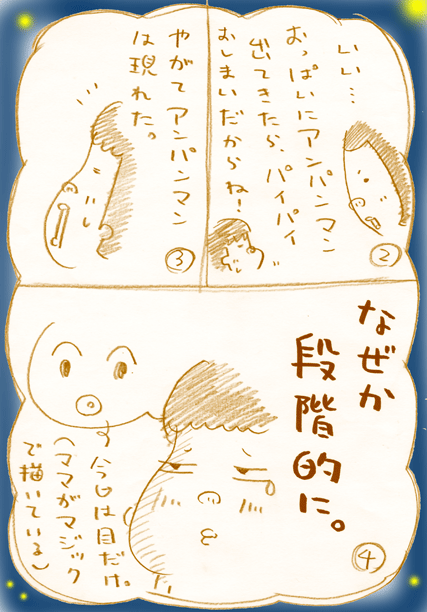 いい…
おっぱいにアンパンマン
出てきたら、パイパイ
おしまいだからね！
②
やがてアンパンマン
は現れた。
③
なぜか
段階的に。
今日は目だけ。
（ママがマジック
で描いている）
④